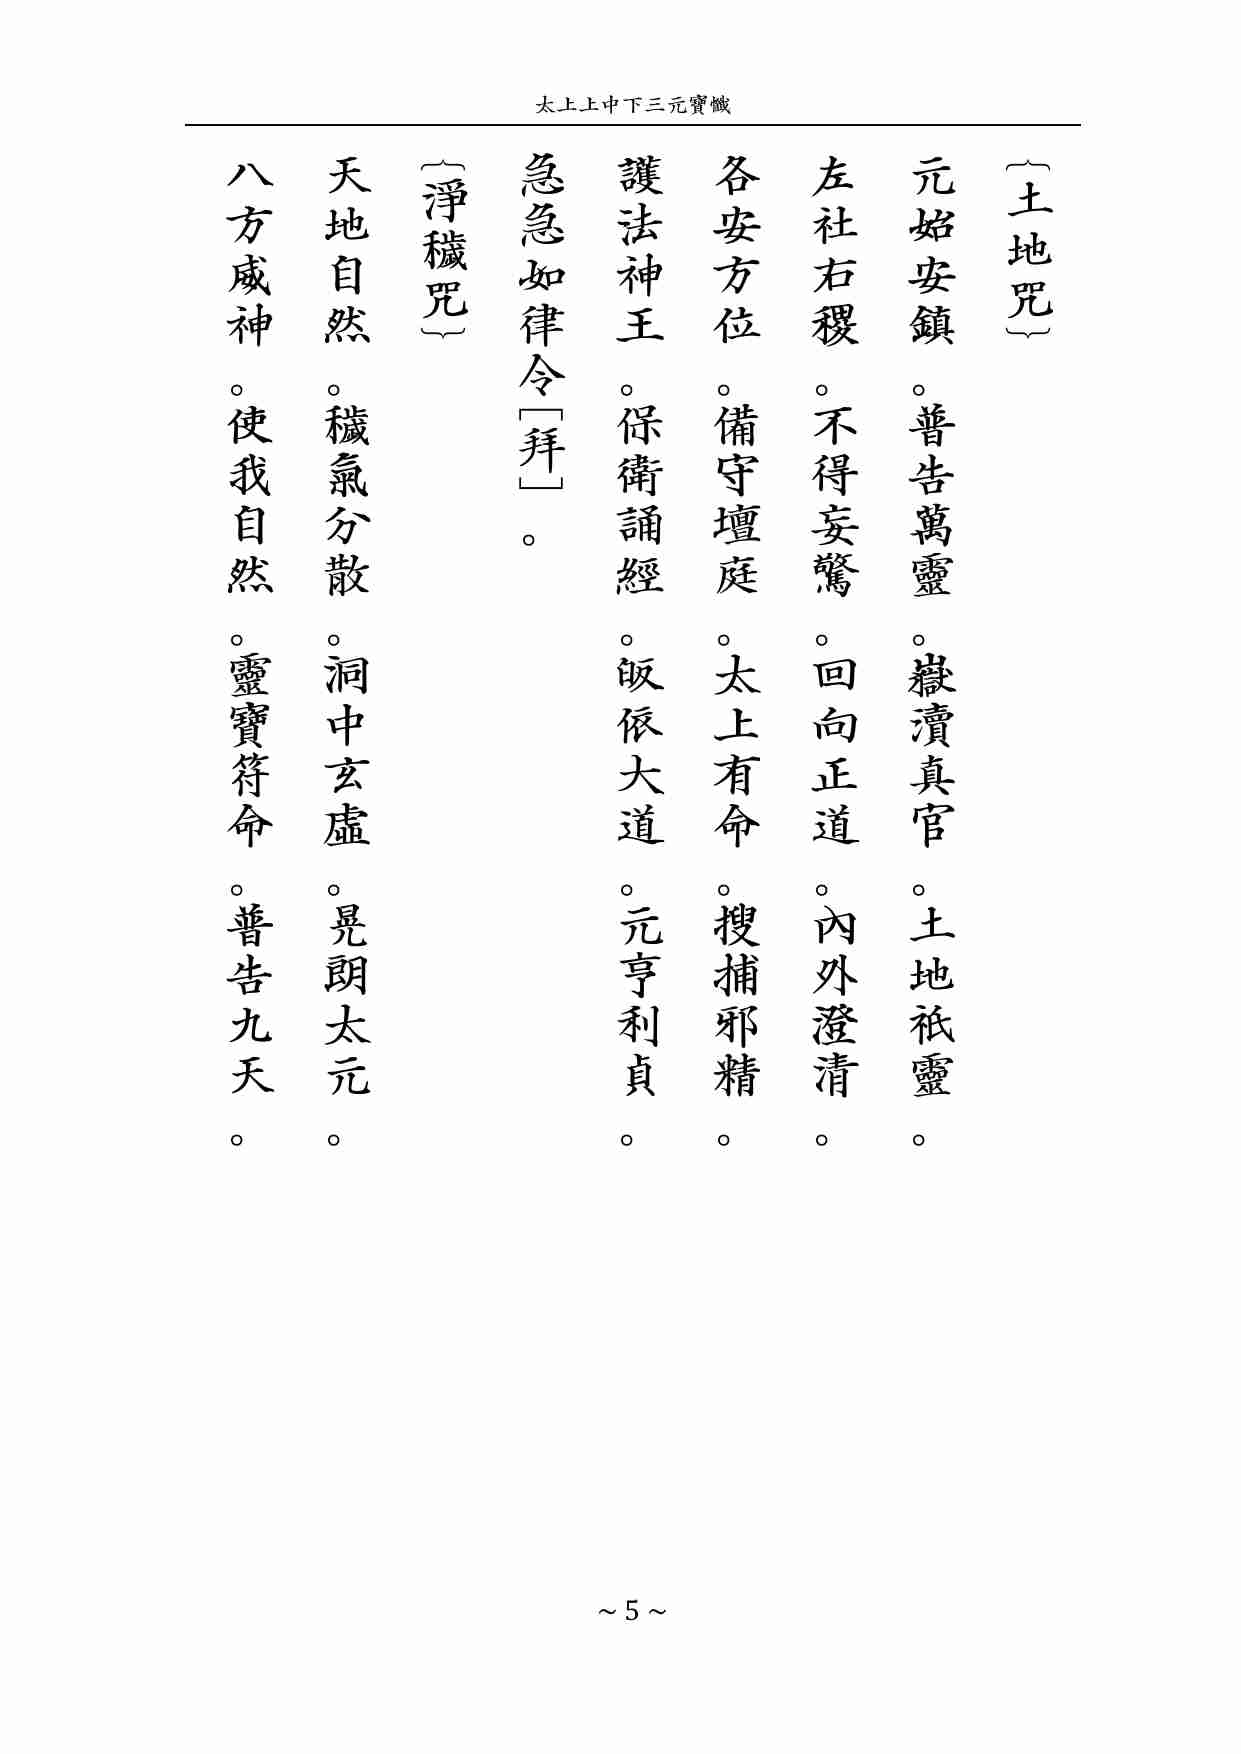 太上上中下三元寶懺
{土地咒}
元始安鎮。普告萬靈。嶽瀆真官。土地祇靈。
左社右稷。不得妄驚。回向正道。內外澄清。
各安方位。備守壇庭。太上有命。搜捕邪精。
護法神王。保衛誦經。皈依大道。元亨利貞。
急急如律令[拜]。
{淨穢咒}
天地自然。穢氣分散。洞中玄虛。晃朗太元。
八方威神。使我自然。靈寶符命。普告九天。
~ 5 ~